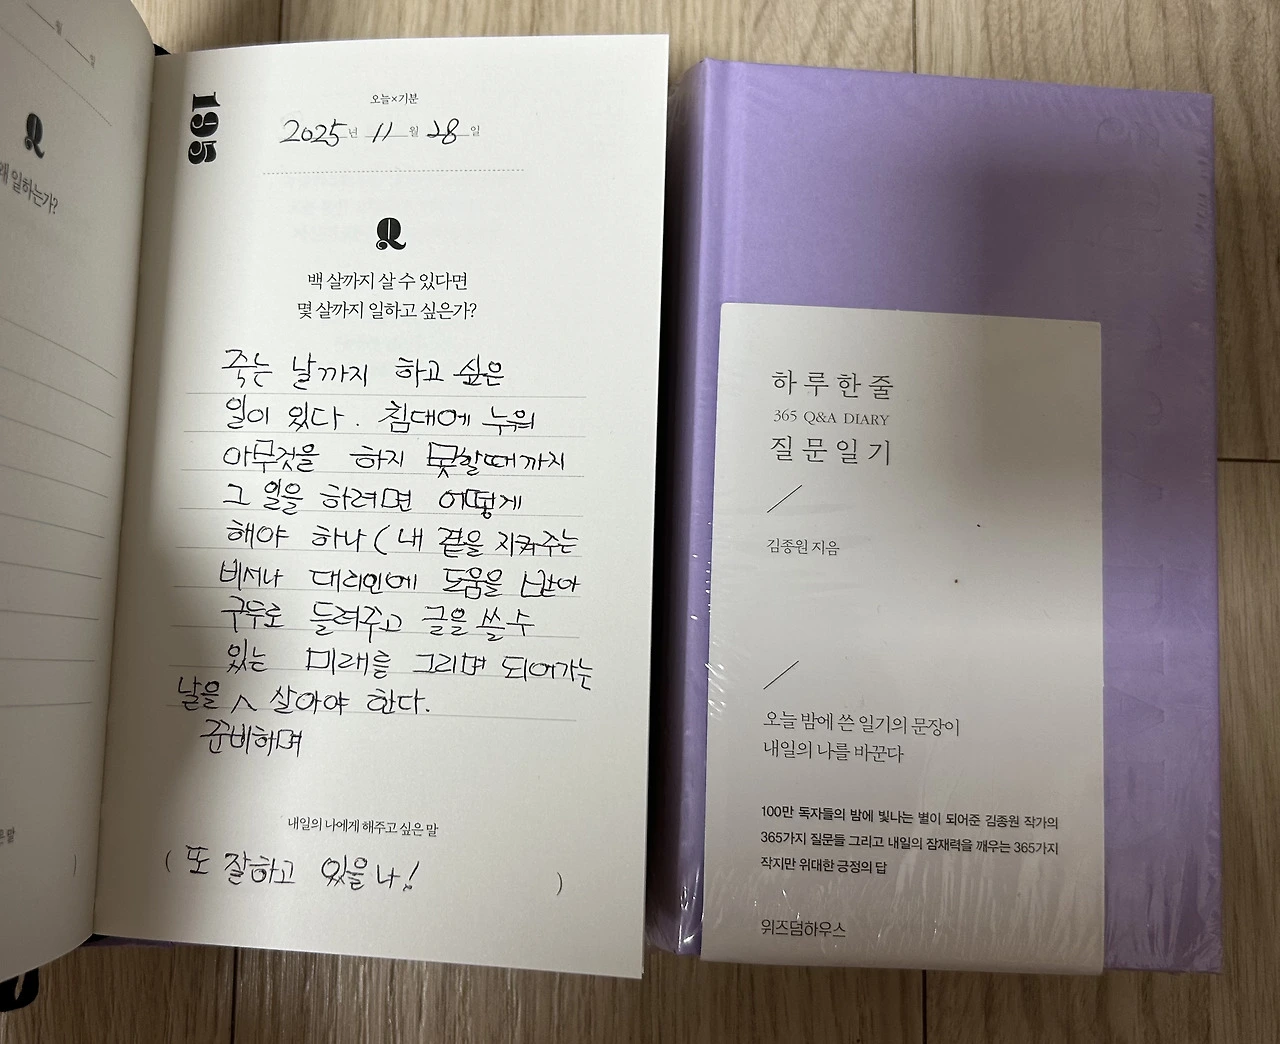 월 일
Q
왜 일하는가?
195
오늘×기분
2025년 11월 28일
Q
백 살까지 살 수 있다면
몇 살까지 일하고 싶은가?
죽는 날까지 하고 싶은
일이 있다. 침대에 누워
아무것을 하지 못할때까지
그 일을 하려면 어떻게
해야 하나 ( 내 곁을 지켜주는
비서나 대리인에 도움을 받아
구두로 들려주고 글을 쓸 수
있는 미래를 그리며 되어가는
날을 ^ 살아야 한다.
준비하며
내일의 나에게 해주고 싶은 말
( 또 잘하고 있을 나! )
하루한줄
365 Q&A DIARY
질문일기
김종원 지음
오늘 밤에 쓴 일기의 문장이
내일의 나를 바꾼다
100만 독자들의 밤에 빛나는 별이 되어준 김종원 작가의
365가지 질문들 그리고 내일의 잠재력을 깨우는 365가지
작지만 위대한 긍정의 답
위즈덤하우스